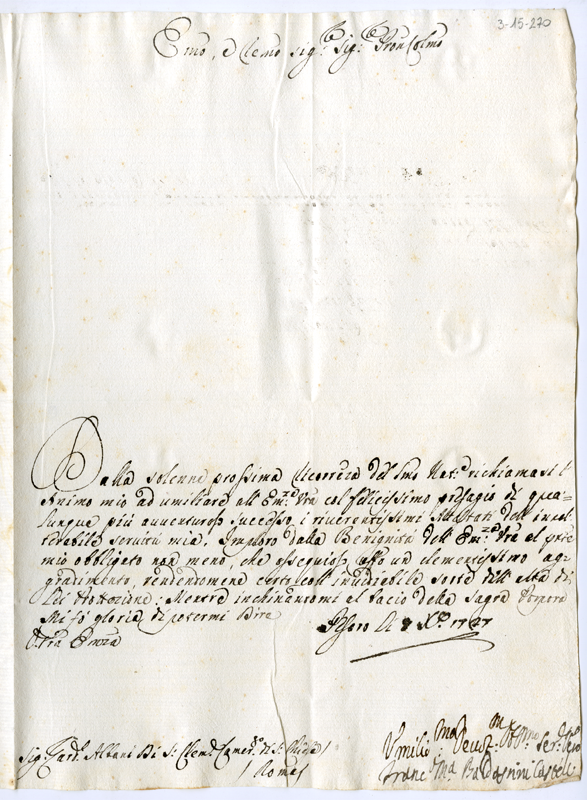 3-15-270
Emo, e Rmo Sig.r Sig.r Pron Colmo
Dalla solenne prossima Ricorrēza del Smo Nat.e richiamasi l'
Animo mio ad umiliare all' Em.za Vra col felicissimo presagio di qua-
lunque più avventuroso successo, i riverentissimi Attestati dell' inal-
terabile servitù mia. Imploro dalla Benignità dell' Em.za Vra al
mio obbligato non meno, che ossequioso uffo un clementissimo ag-
gradimento, rendendomene certo coll' invidiabile sorte dell' alta di
Lei Protezione: Mentre inchinandomi al bacio della Sagra Porpora
Mi fo' gloria di potermi dire
D. Vra Emza
Pesaro li Xbre 1727
Sig. Card. Albani di S. Clem. Camer.go di S. Chiesa
Roma
Umilis.mo Devot. Obb.mo Ser.
Franc. Ma. Baldassini Castelli